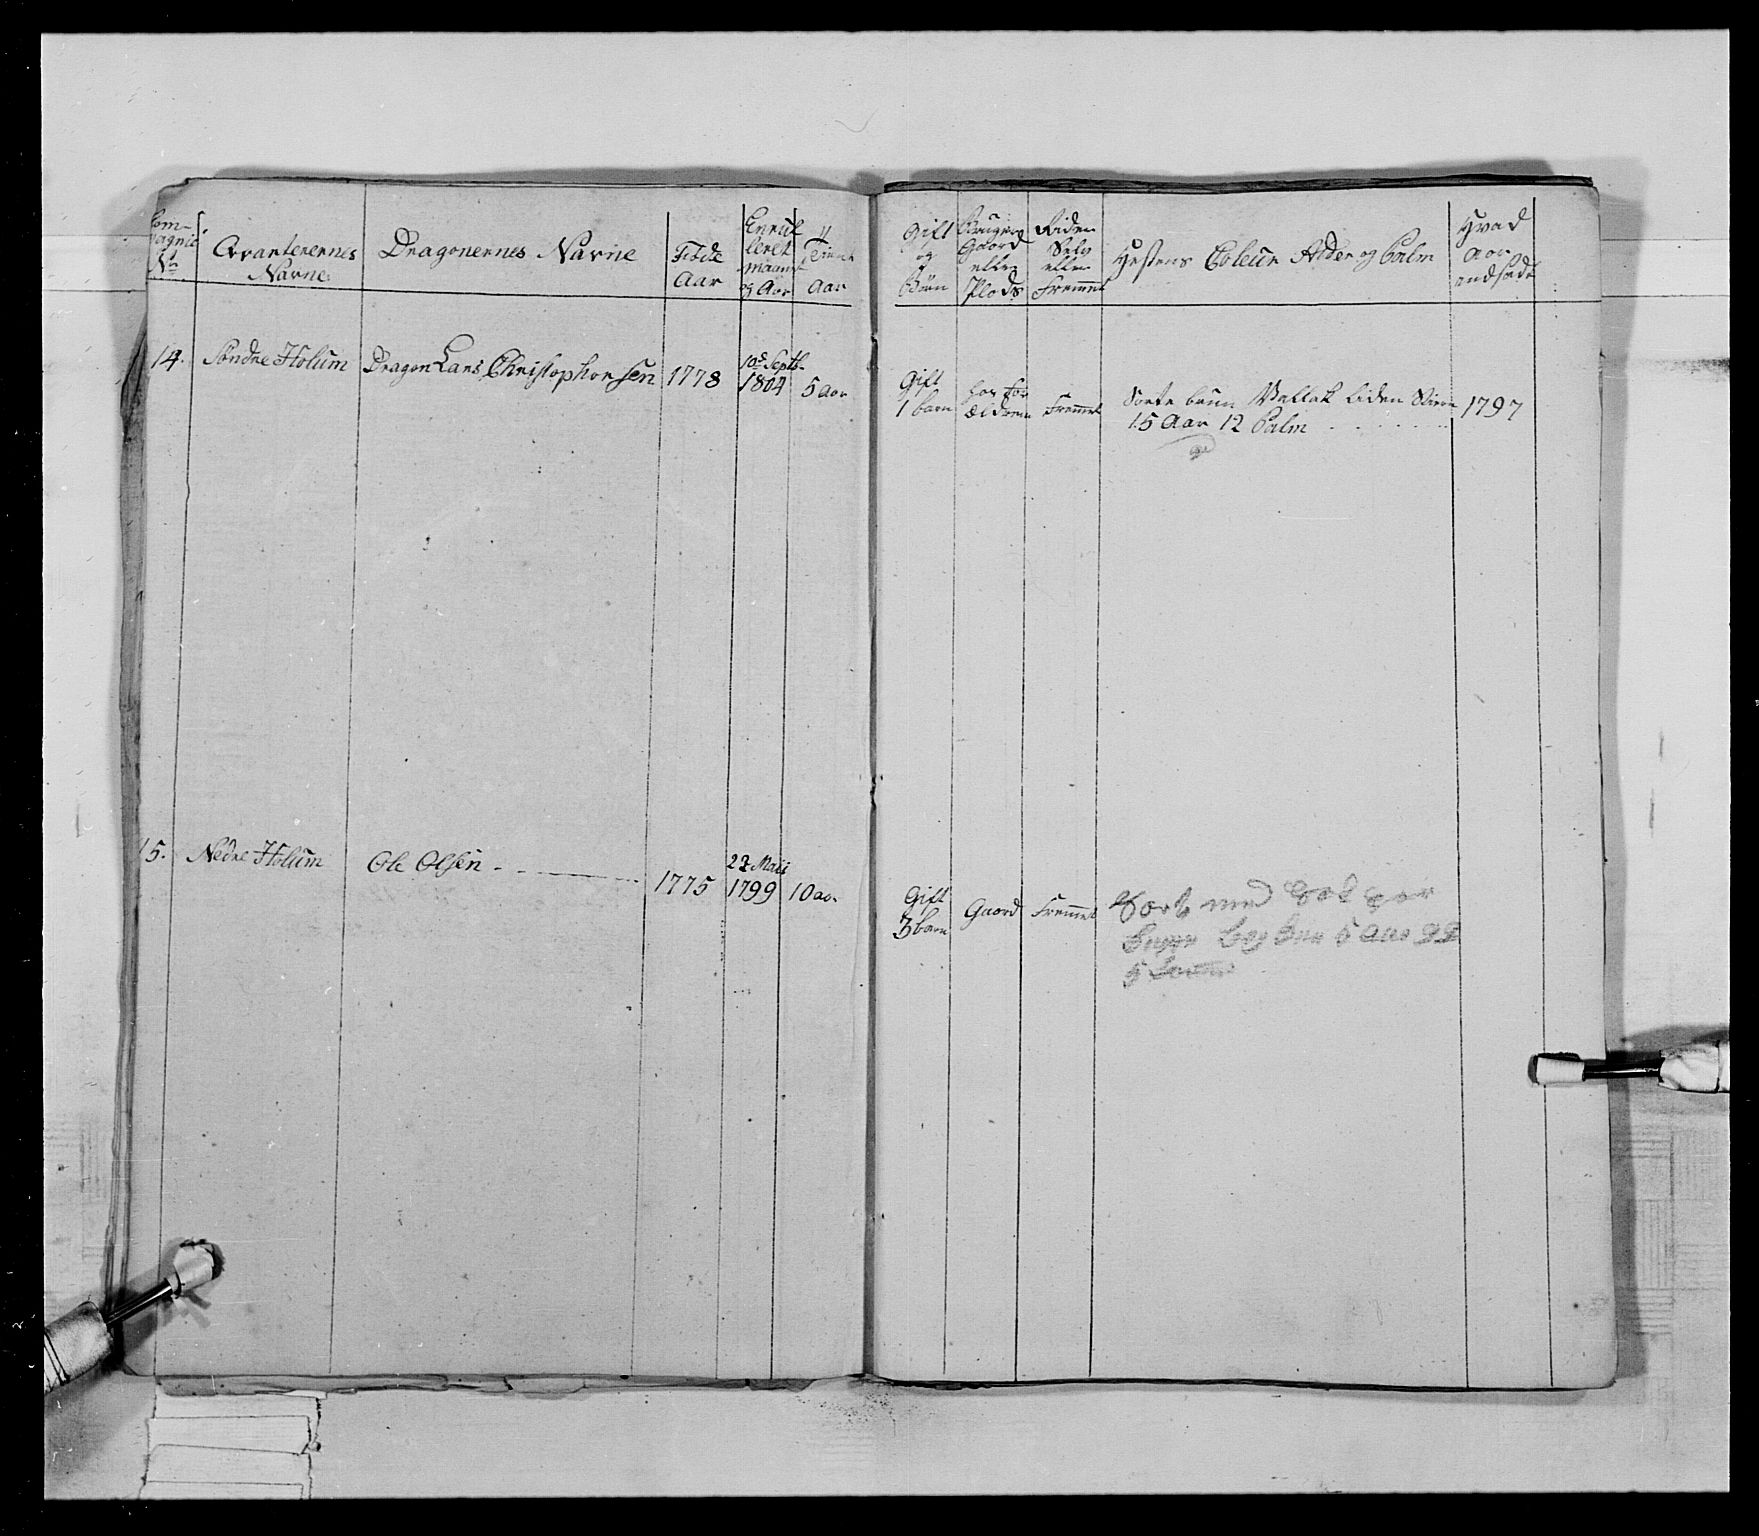 Com-
pagnie
No
Qvarterernes
Navne.
Dragonernes Navne
Fødte
Aar
Enrul
leret
Maan
og Aar
Tient
Aar
Gift
og
Børn
Bruger
Gaard
eller
Plads
Rider
Selv
eller
Fremmet
Hestens Coleur Alder og Palm
Hvad
Aar
andsadt
14.
Søndre Holum
Dragon Lars Christophersen
1778
10d Septb.
1804
5 Aar
Gift
1 barn
hos for
ældrene
Fremmet
Sorte brun Vallak liden
1797
15 Aar 12 Palm
15.
Nedre Holum
Ole Olsen
1775
Maii
1799
10 aar
Gift
3 barn
Gaard
Fremmet
Sort med
5 Aar
5